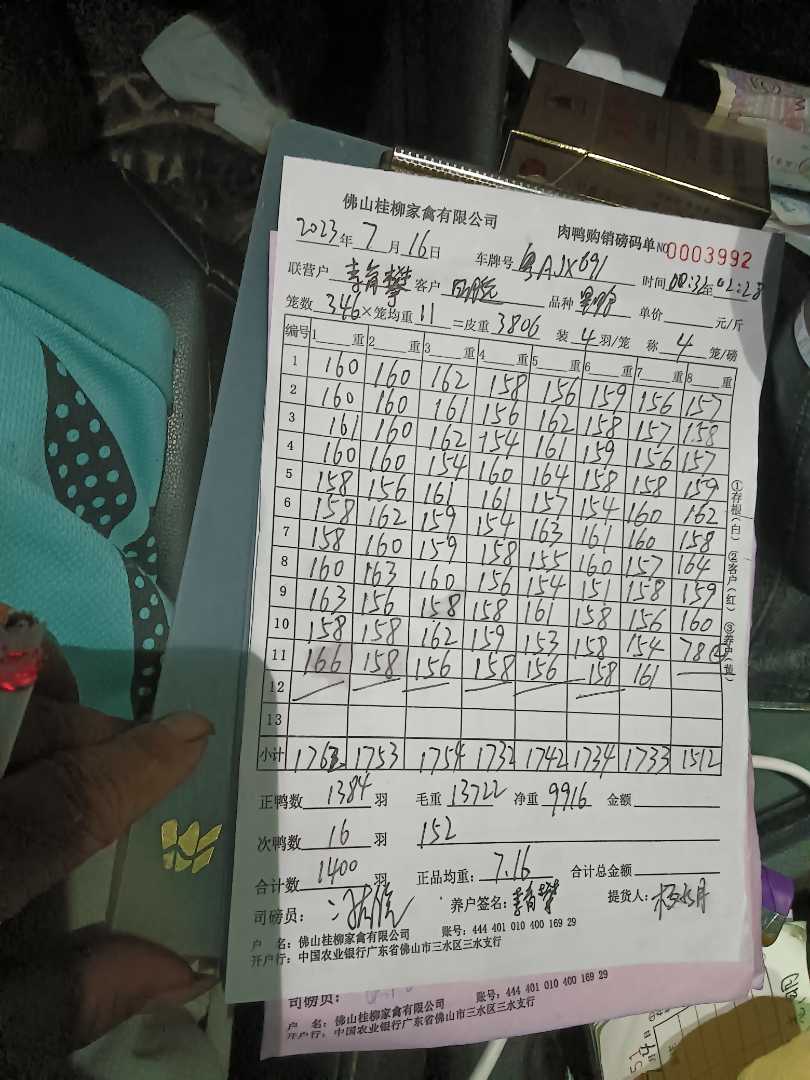 佛山桂柳家禽有限公司 肉鸭购销磅码单 NO 0003992
2023年 7月 16日 车牌号 粤AJX691 时间 00:32至02:28
联营户 李育攀 客户 品种 单价 元/斤
笼数 346×笼均重 11 =皮重 3806 装 4 羽/笼 称 4 笼/磅
编号 1 重 2 重 3 重 4 重 5 重 6 重 7 重 8 重
1 160 160 162 158 156 159 156 157
2 160 160 161 156 162 158 157 158
3 161 160 162 154 161 159 156 157
4 160 160 154 160 164 158 158 159
5 158 156 161 161 157 154 160 162
6 158 162 159 154 163 161 160 158
7 158 160 159 158 155 160 157 164
8 160 163 160 156 154 151 158 159
9 163 156 158 158 161 158 156 160
10 158 158 162 159 153 158 154 78
11 166 158 156 158 156 158 161
12
13
小计 1762 1753 1754 1732 1742 1734 1733 1512
①存根(白) ②客户(红) ③养户(黄)
正鸭数 1384 羽 毛重 13722 净重 9916 金额
次鸭数 16 羽 152
合计数 1400 羽 正品均重: 7.16 合计总金额
司磅员: 养户签名: 李育攀 提货人: 杨水月
户 名: 佛山桂柳家禽有限公司 账号: 444 401 010 400 169 29
开户行: 中国农业银行广东省佛山市三水区三水支行
司磅员:
户 名: 佛山桂柳家禽有限公司 账号: 444 401 010 400 169 29
开户行: 中国农业银行广东省佛山市三水区三水支行